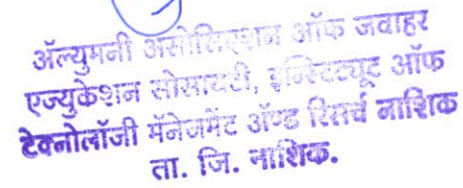 ॲल्युमनी असोसिएशन ऑफ जवाहर
एज्युकेशन सोसायटी, इन्स्टिट्युट ऑफ
टेक्नोलॉजी मॅनेजमेंट ॲण्ड रिसर्च नाशिक
ता. जि. नाशिक.